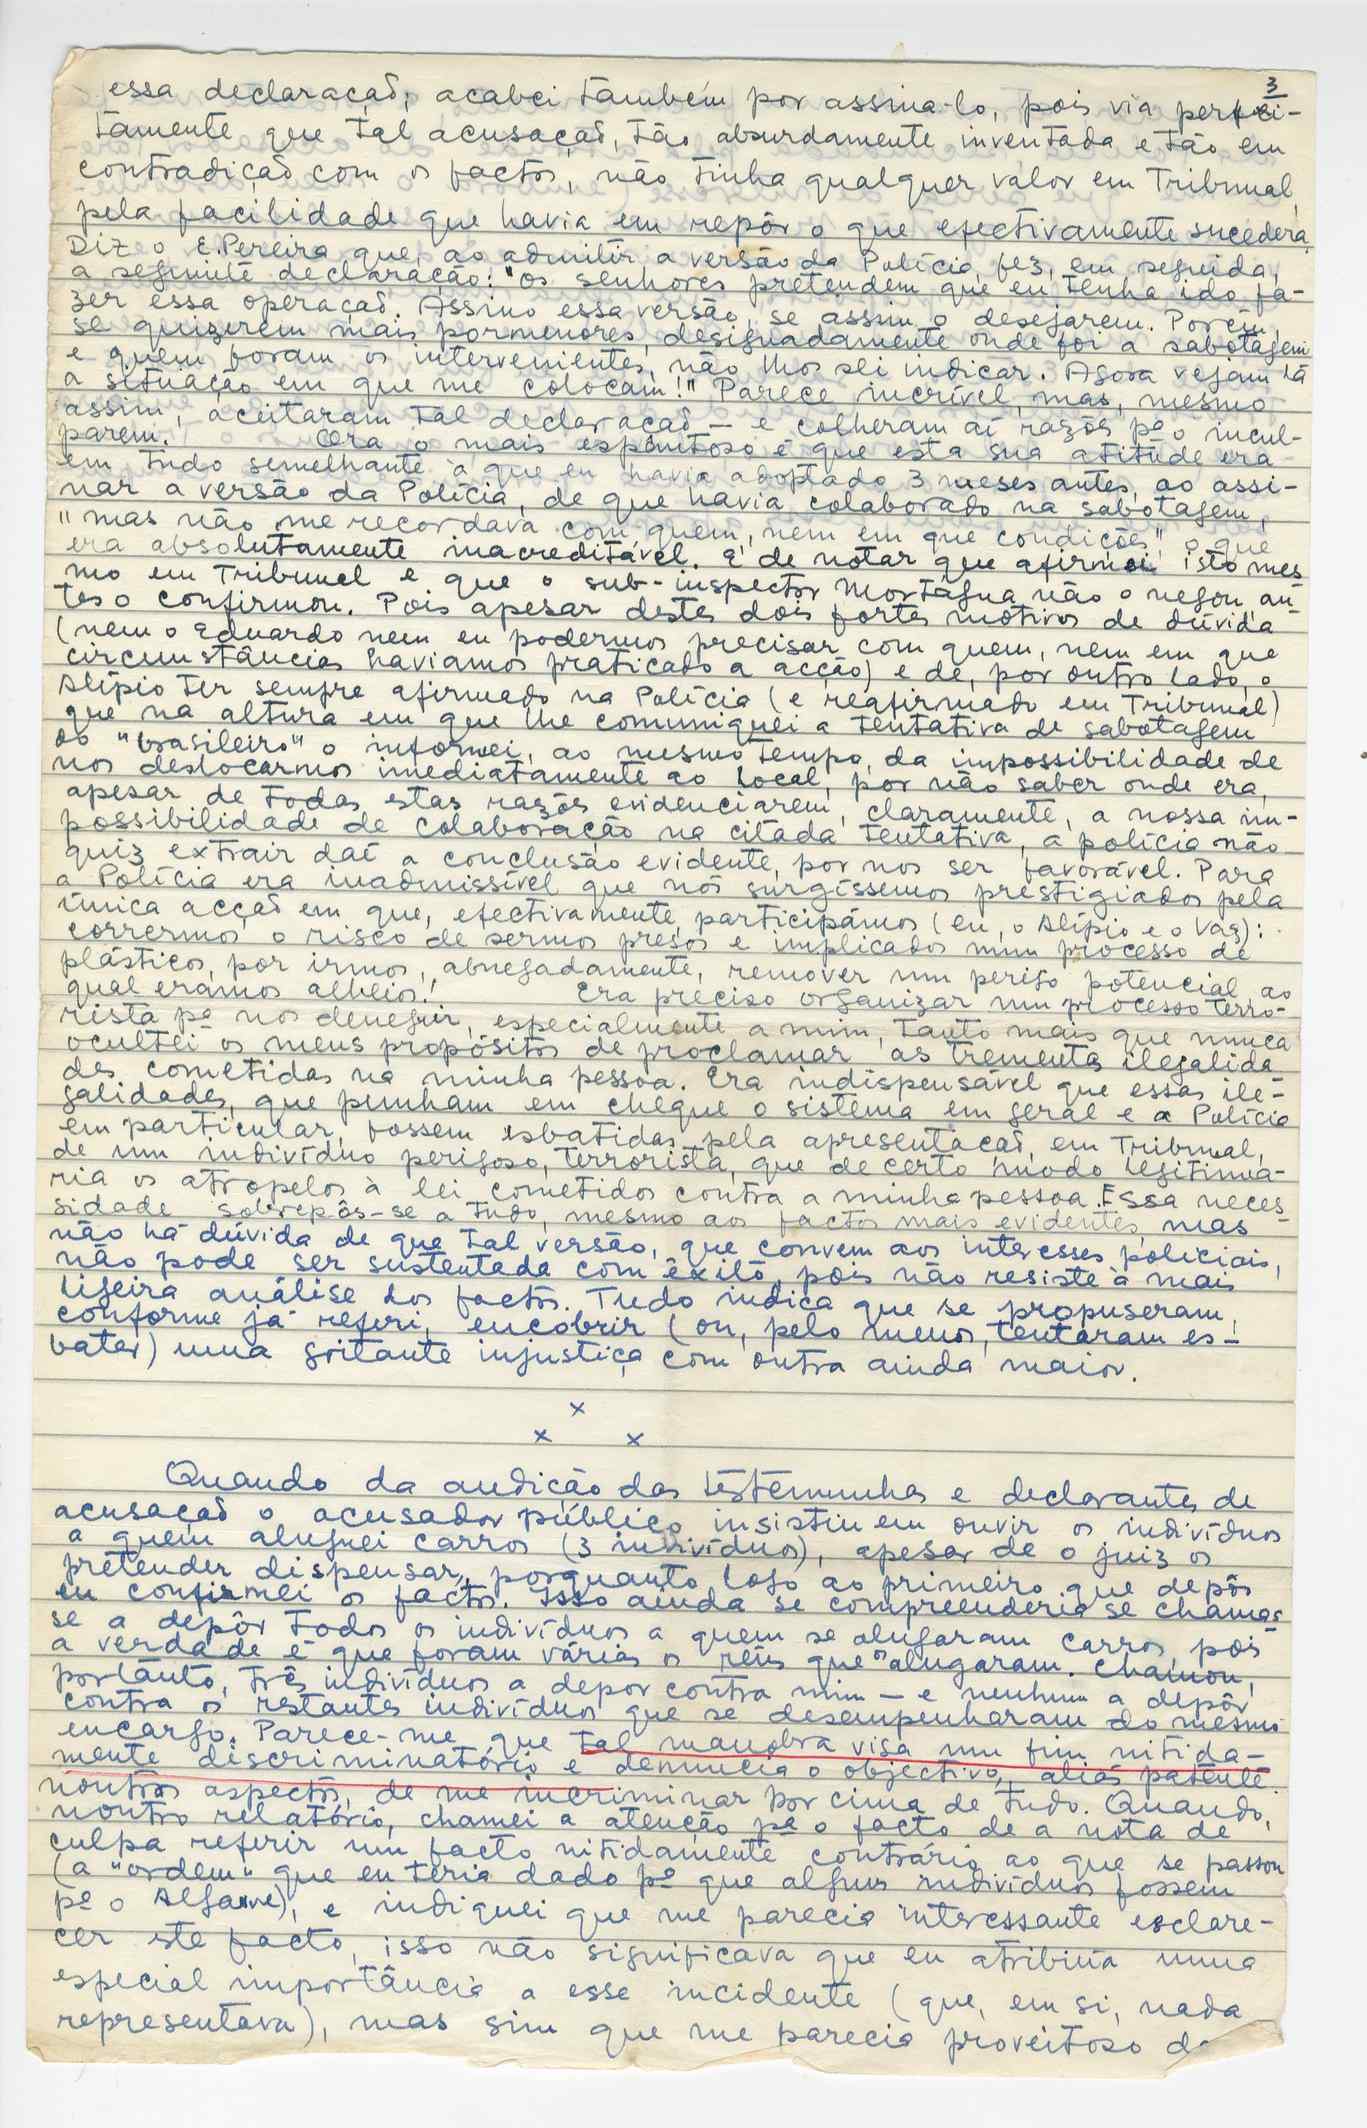 3
essa declaração, acabei também por assina-lo, pois via perfei-
tamente que tal acusação, tão absurdamente inventada e tão em
contradição com os factos, não tinha qualquer valor em Tribunal,
pela facilidade que havia em repôr o que efectivamente sucedera.
Diz o E. Pereira que, ao admitir a versão da Polícia, fez, em seguida,
a seguinte declaração: "Os senhores pretendem que eu tenha ido fa-
zer essa operação. Assino essa versão, se assim o desejarem. Porém,
se quizerem mais pormenores, designadamente onde foi a sabotagem
e quem foram os intervenientes, não lhos sei indicar. Agora vejam lá
a situação em que me colocam!" Parece incrível, mas, mesmo
assim, aceitaram tal declaração — e colheram aí razões pª o incul-
parem. Ora o mais espantoso é que esta sua atitude era
em tudo semelhante à que eu havia adoptado 3 meses antes, ao assi-
nar a versão da Polícia, de que havia colaborado na sabotagem,
"mas não me recordava com quem, nem em que condições", o que
era absolutamente inacreditável. É de notar que afirmei isto mes-
mo em Tribunal e que o sub-inspector Mortágua não o negou, an-
tes o confirmou. Pois apesar destes dois fortes motivos de dúvida
(nem o Eduardo nem eu podermos precisar com quem, nem em que
circunstâncias haviamos praticado a acção) e de, por outro lado, o
Alípio ter sempre afirmado na Polícia (e reafirmado em Tribunal)
que na altura em que lhe comuniquei a tentativa de sabotagem
do "brasileiro" o informei, ao mesmo tempo, da impossibilidade de
nos deslocarmos imediatamente ao local, por não saber onde era,
apesar de todas estas razões evidenciarem, claramente, a nossa im-
possibilidade de colaboração na citada tentativa, a polícia não
quiz extrair daí a conclusão evidente, por nos ser favorável. Para
a Polícia era inadmissível que nós surgíssemos prestigiados pela
única acção em que, efectivamente, participámos (eu, o Alípio e o Vaz):
corrermos o risco de sermos presos e implicados num processo de
plásticos, por irmos, abnegadamente, remover um perigo potencial ao
qual eramos alheios! Era preciso organizar um processo terro-
rista pª nos denegrir, especialmente a mim, tanto mais que nunca
ocultei os meus propósitos de proclamar as trementas ilegalida
des cometidas na minha pessoa. Era indispensável que essas ile-
galidades, que punham em cheque o sistema em geral e a Polícia
em particular, fossem esbatidas pela apresentação, em Tribunal,
de um indivíduo perigoso, terrorista, que de certo modo legitima-
ria os atropelos à lei cometidos contra a minha pessoa. Essa neces-
sidade sobrepôs-se a tudo, mesmo aos factos mais evidentes, mas
não há dúvida de que tal versão, que convem aos interesses policiais,
não pode ser sustentada com êxito, pois não resiste à mais
ligeira análise dos factos. Tudo indica que se propuseram,
conforme já referi, encobrir (ou, pelo menos, tentaram es-
bater) uma gritante injustiça com outra ainda maior.
x
x x
Quando da audição das testemunhas e declarantes de
acusação o acusador público insistiu em ouvir os indivíduos
a quem aluguei carros (3 indivíduos), apesar de o juiz os
pretender dispensar, porquanto logo ao primeiro que depôs
eu confirmei os factos. Isso ainda se compreenderia se chamas-
se a depôr todos os indivíduos a quem se alugaram carros, pois
a verdade é que foram vários os réus que os alugaram. Chamou,
portanto, três indivíduos a depor contra mim — e nenhum a depôr
contra os restantes indivíduos que se desempenharam do mesmo
encargo. Parece-me que tal manobra visa um fim nitida-
mente discriminatório e denuncia o objectivo, aliás patente
noutros aspectos, de me incriminar por cima de tudo. Quando,
noutro relatório, chamei a atenção pª o facto de a nota de
culpa referir um facto nitidamente contrário ao que se passou
(a "ordem" que eu teria dado pª que alguns indivíduos fossem
pª o Algarve), e indiquei que me parecia interessante esclare-
cer este facto, isso não significava que eu atribuia uma
especial importância a esse incidente (que, em si, nada
representava), mas sim que me parecia proveitoso